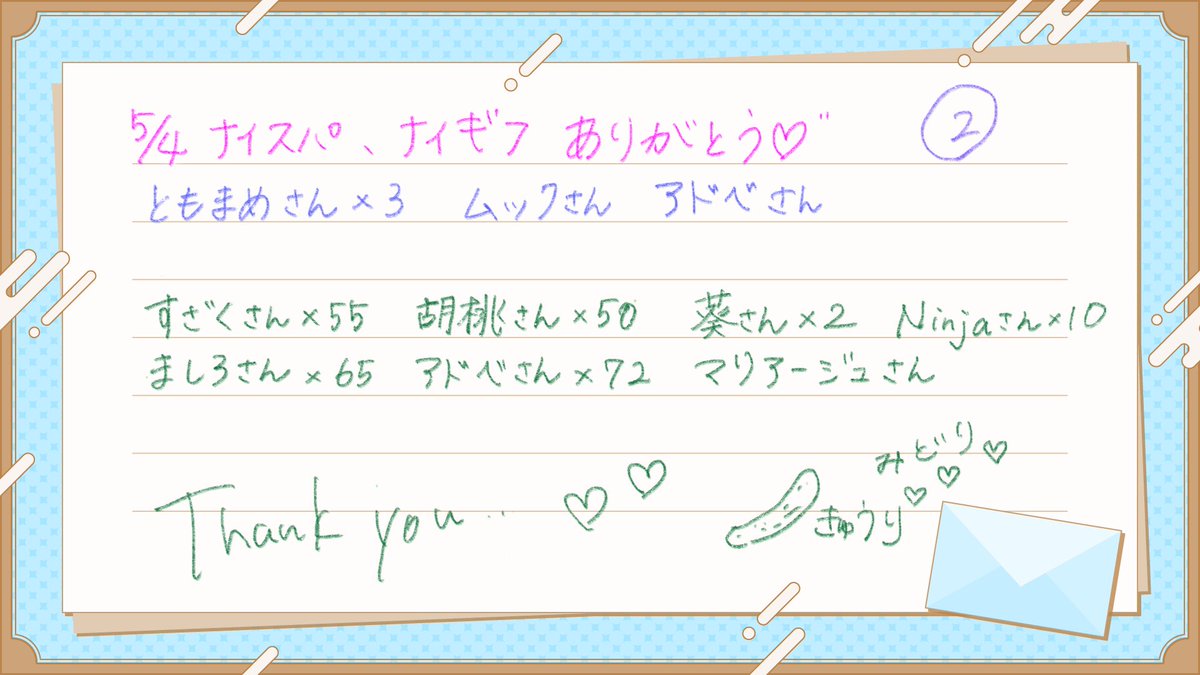 5/4 ナイスパ、ナイギフ ありがとう♡" ②
ともまめさん×3 ムックさん アドベさん
すざくさん×55 胡桃さん×50 葵さん×2 Ninjaさん×10
ましろさん×65 アドベさん×72 マリアージュさん
みどり♡
Thank you.. ♡♡ きゅうり♡♡